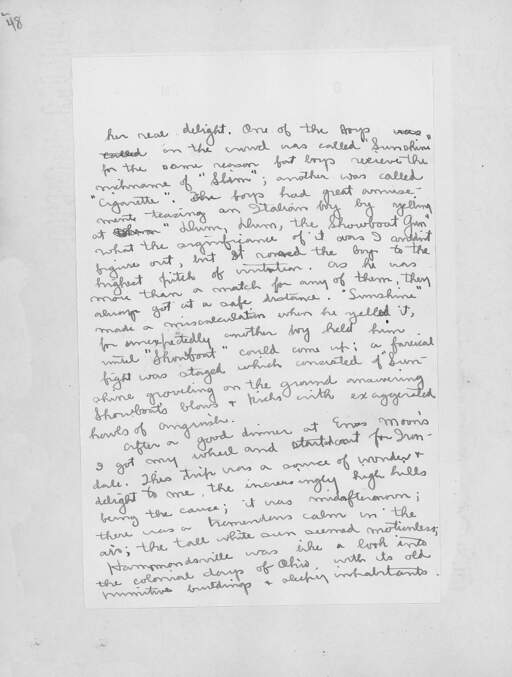 48
her real delight. One of the boys was
called in the crowd was called "Sunshine"
for the same reason fat boys recieve the
nickname of "Slim"; another was called
"Cigarette". The boys had great amuse-
ment teasing an Italian boy by yelling
at "Dlum, dlum, the Showboat Gun"
what the significance of it was I couldn't
figure out, but it roused the boy to the
highest pitch of irritation. As he was
more than a match for any of them, they
always got at a safe distance. "Sunshine"
made a miscalculation when he yelled it,
for unexpectedly another boy held him
until "Showboat" could come up; a farcical
fight was staged which consisted of "Sun-
shine groveling on the ground answering
Showboat's blows & kicks with exaggerated
howls of anguish.
After a good dinner at Enos Moon's
I got my wheel and started out for Iron-
dale. This trip was a source of wonder &
delight to me, the increasingly high hills
being the cause; it was midafternoon;
there was a tremendous calm in the
air; the tall white sun seemed motionless,
Hammondsville was like a look into
the colonial days of Ohio, with its old
primitive buildings & sleepy inhabitants.